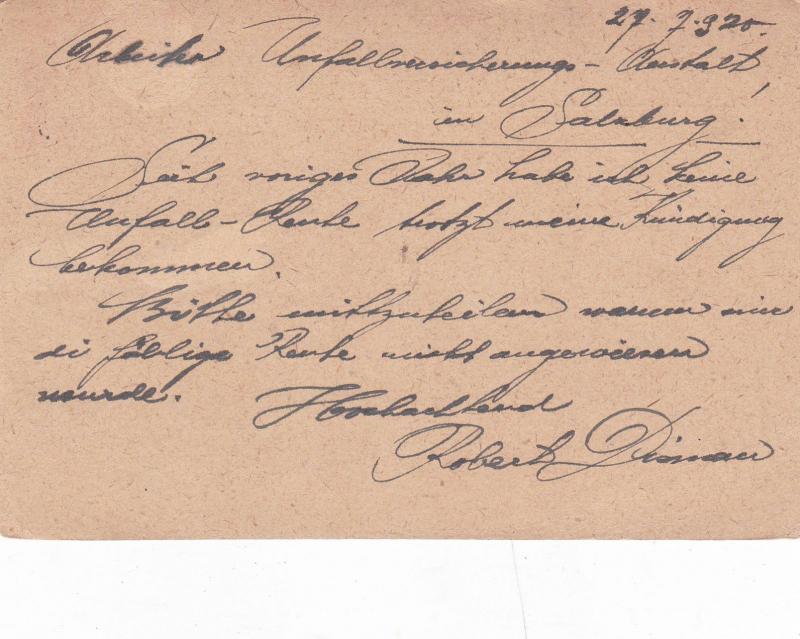 27. 7. 920.
Arbeiter Unfallversicherungs-Anstalt,
in Salzburg.
Seit voriges Jahr habe ich keine
Unfall-Rente trotzt meine Kündigung
bekommen.
Bitte mittzuteilen warum mir
di fällige Rente nicht angewiesen
wurde.
Hochachtend
Robert